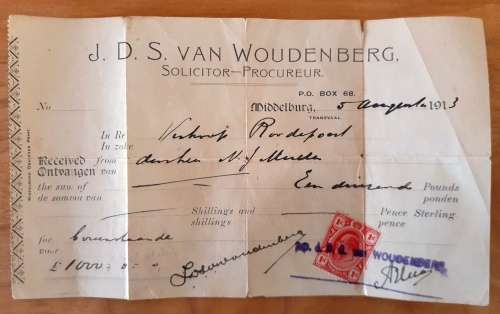 J. D. S. VAN WOUDENBERG,
SOLICITOR—PROCUREUR.
P.O. BOX 68.
No
Middelburg, 5 1913
TRANSVAAL
In Re
In zake Verkoop Rondepoort
Received from
Ontvangen van N. J.
the sum of
de somma van Een duizend Pounds
ponden
Shillings and
shillings Pence Sterling
pence
for
voor Bovenstaande
£ 1000
J. D. S. VAN WOUDENBERG